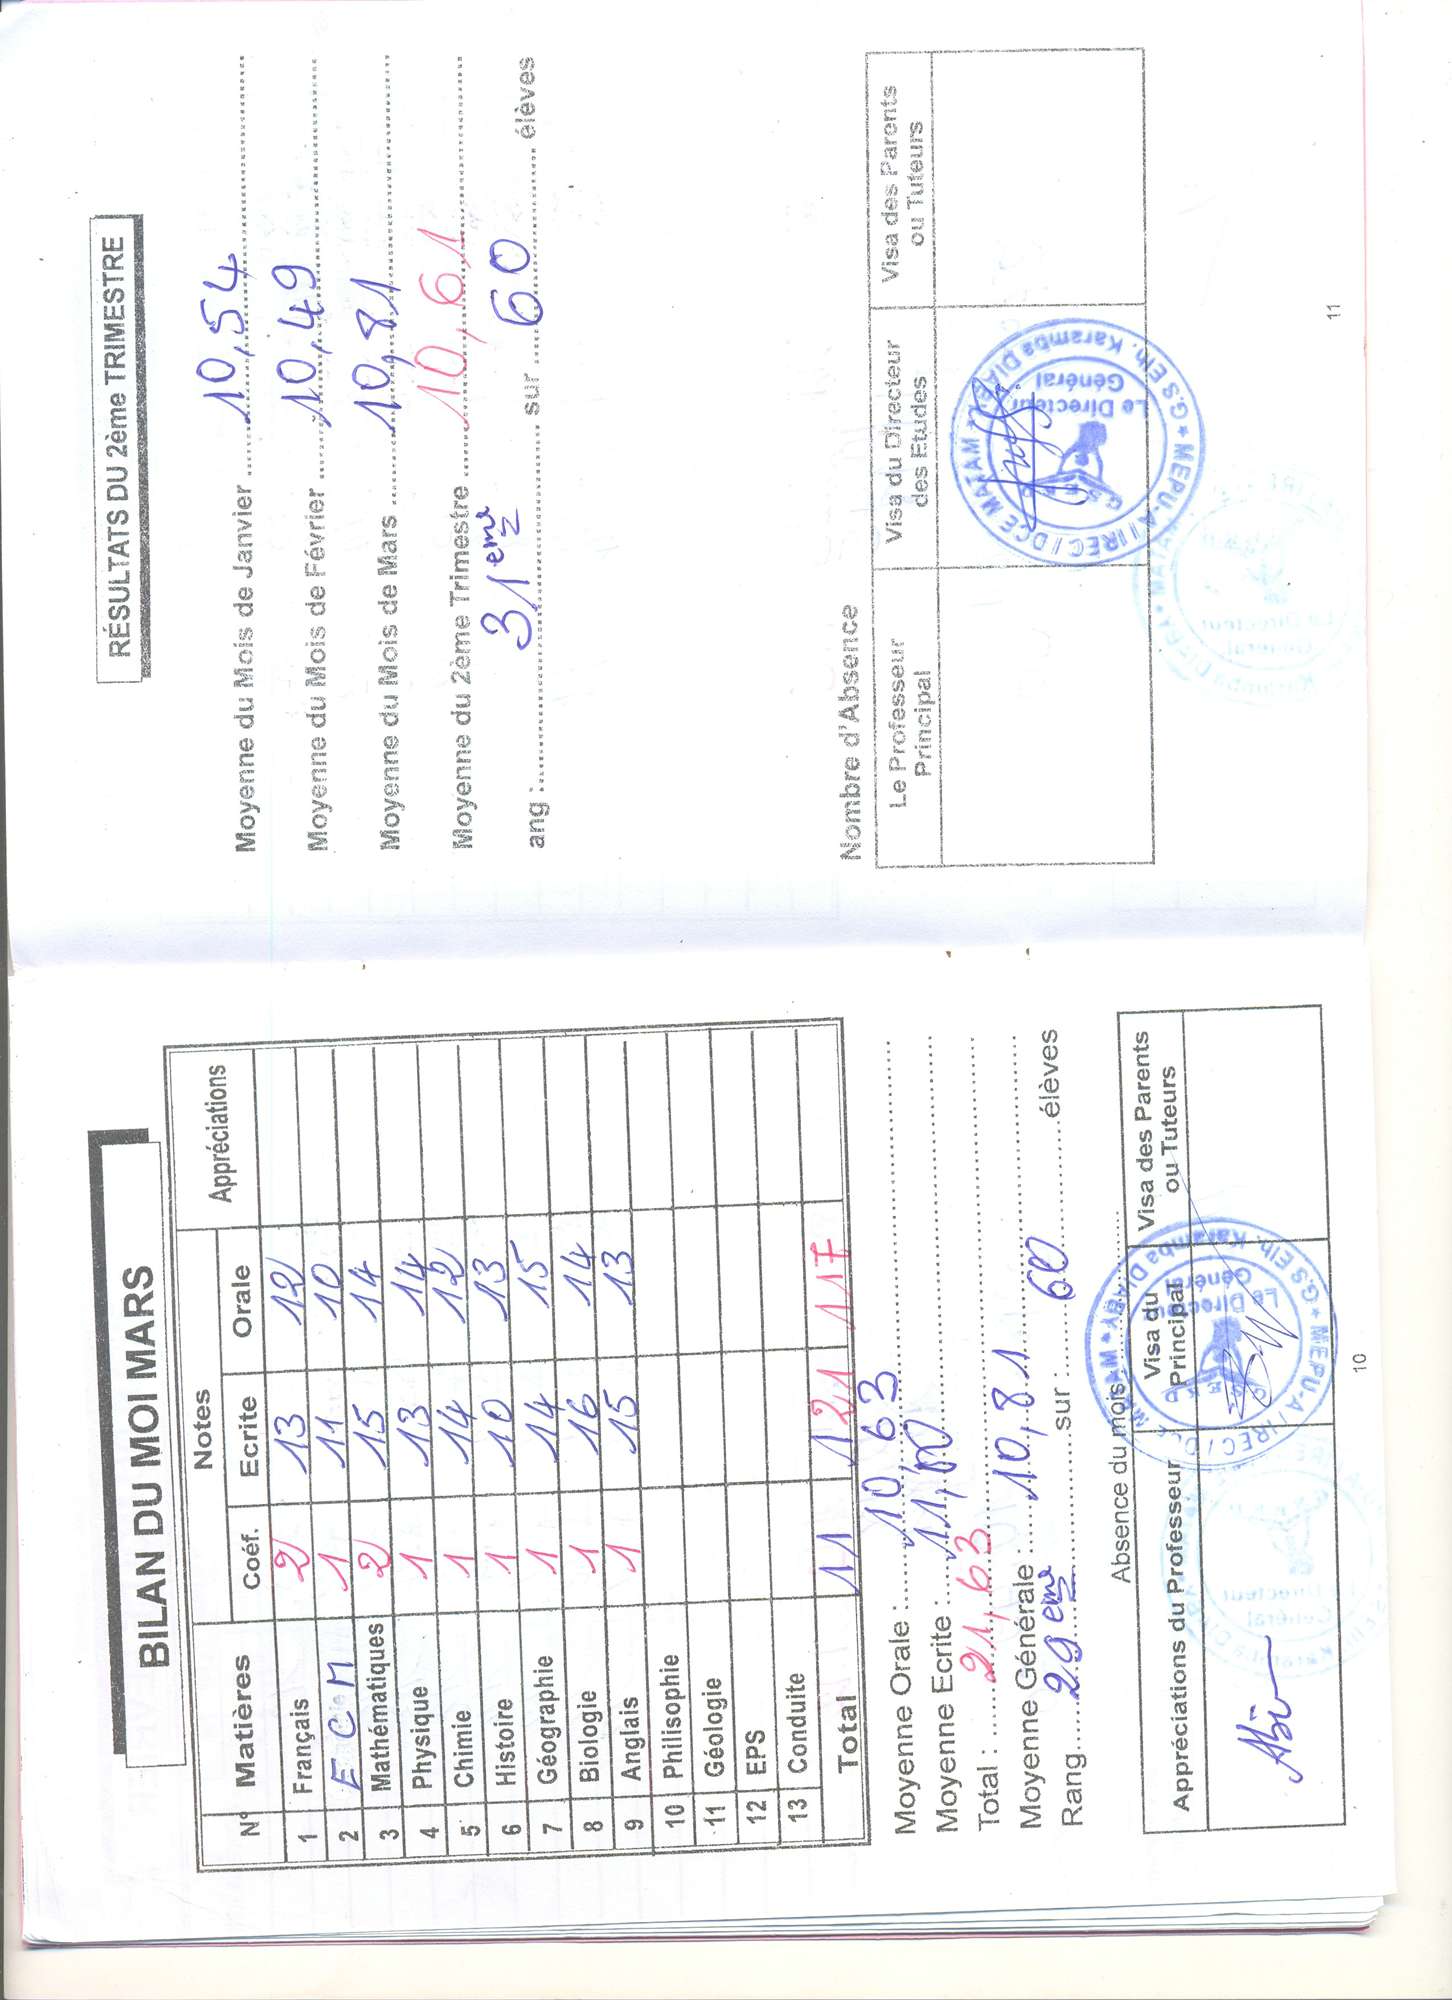 BILAN DU MOI MARS
N° Matières Notes Appréciations
Coéf. Ecrite Orale
1 Français 2 13 12
2 E C M 1 11 10
3 Mathématiques 2 15 14
4 Physique 1 13 14
5 Chimie 1 14 12
6 Histoire 1 10 13
7 Géographie 1 14 15
8 Biologie 1 16 14
9 Anglais 1 15 13
10 Philisophie
11 Géologie
12 EPS
13 Conduite
Total 11 121 117
Moyenne Orale : 10,63
Moyenne Ecrite : 11,00
Total : 21,63
Moyenne Générale : 10,81
Rang 29eme sur : 60 élèves
Absence du mois :
Appréciations du Professeur
Visa du Principal
Visa des Parents ou Tuteurs
MEPU-A / IREC / DCE MATAM
G.S Elh. Karamba DIABY
Le Directeur
Général
10
RÉSULTATS DU 2ème TRIMESTRE
Moyenne du Mois de Janvier 10,54
Moyenne du Mois de Février 10,49
Moyenne du Mois de Mars 10,81
Moyenne du 2ème Trimestre 10,61
ang : 31eme sur 60 élèves
Nombre d'Absence
Le Professeur Principal
Visa du Directeur des Etudes
Visa des Parents ou Tuteurs
MEPU-A / IREC / DCE MATAM
G.S Elh. Karamba DIABY
Le Directeur
Général
11